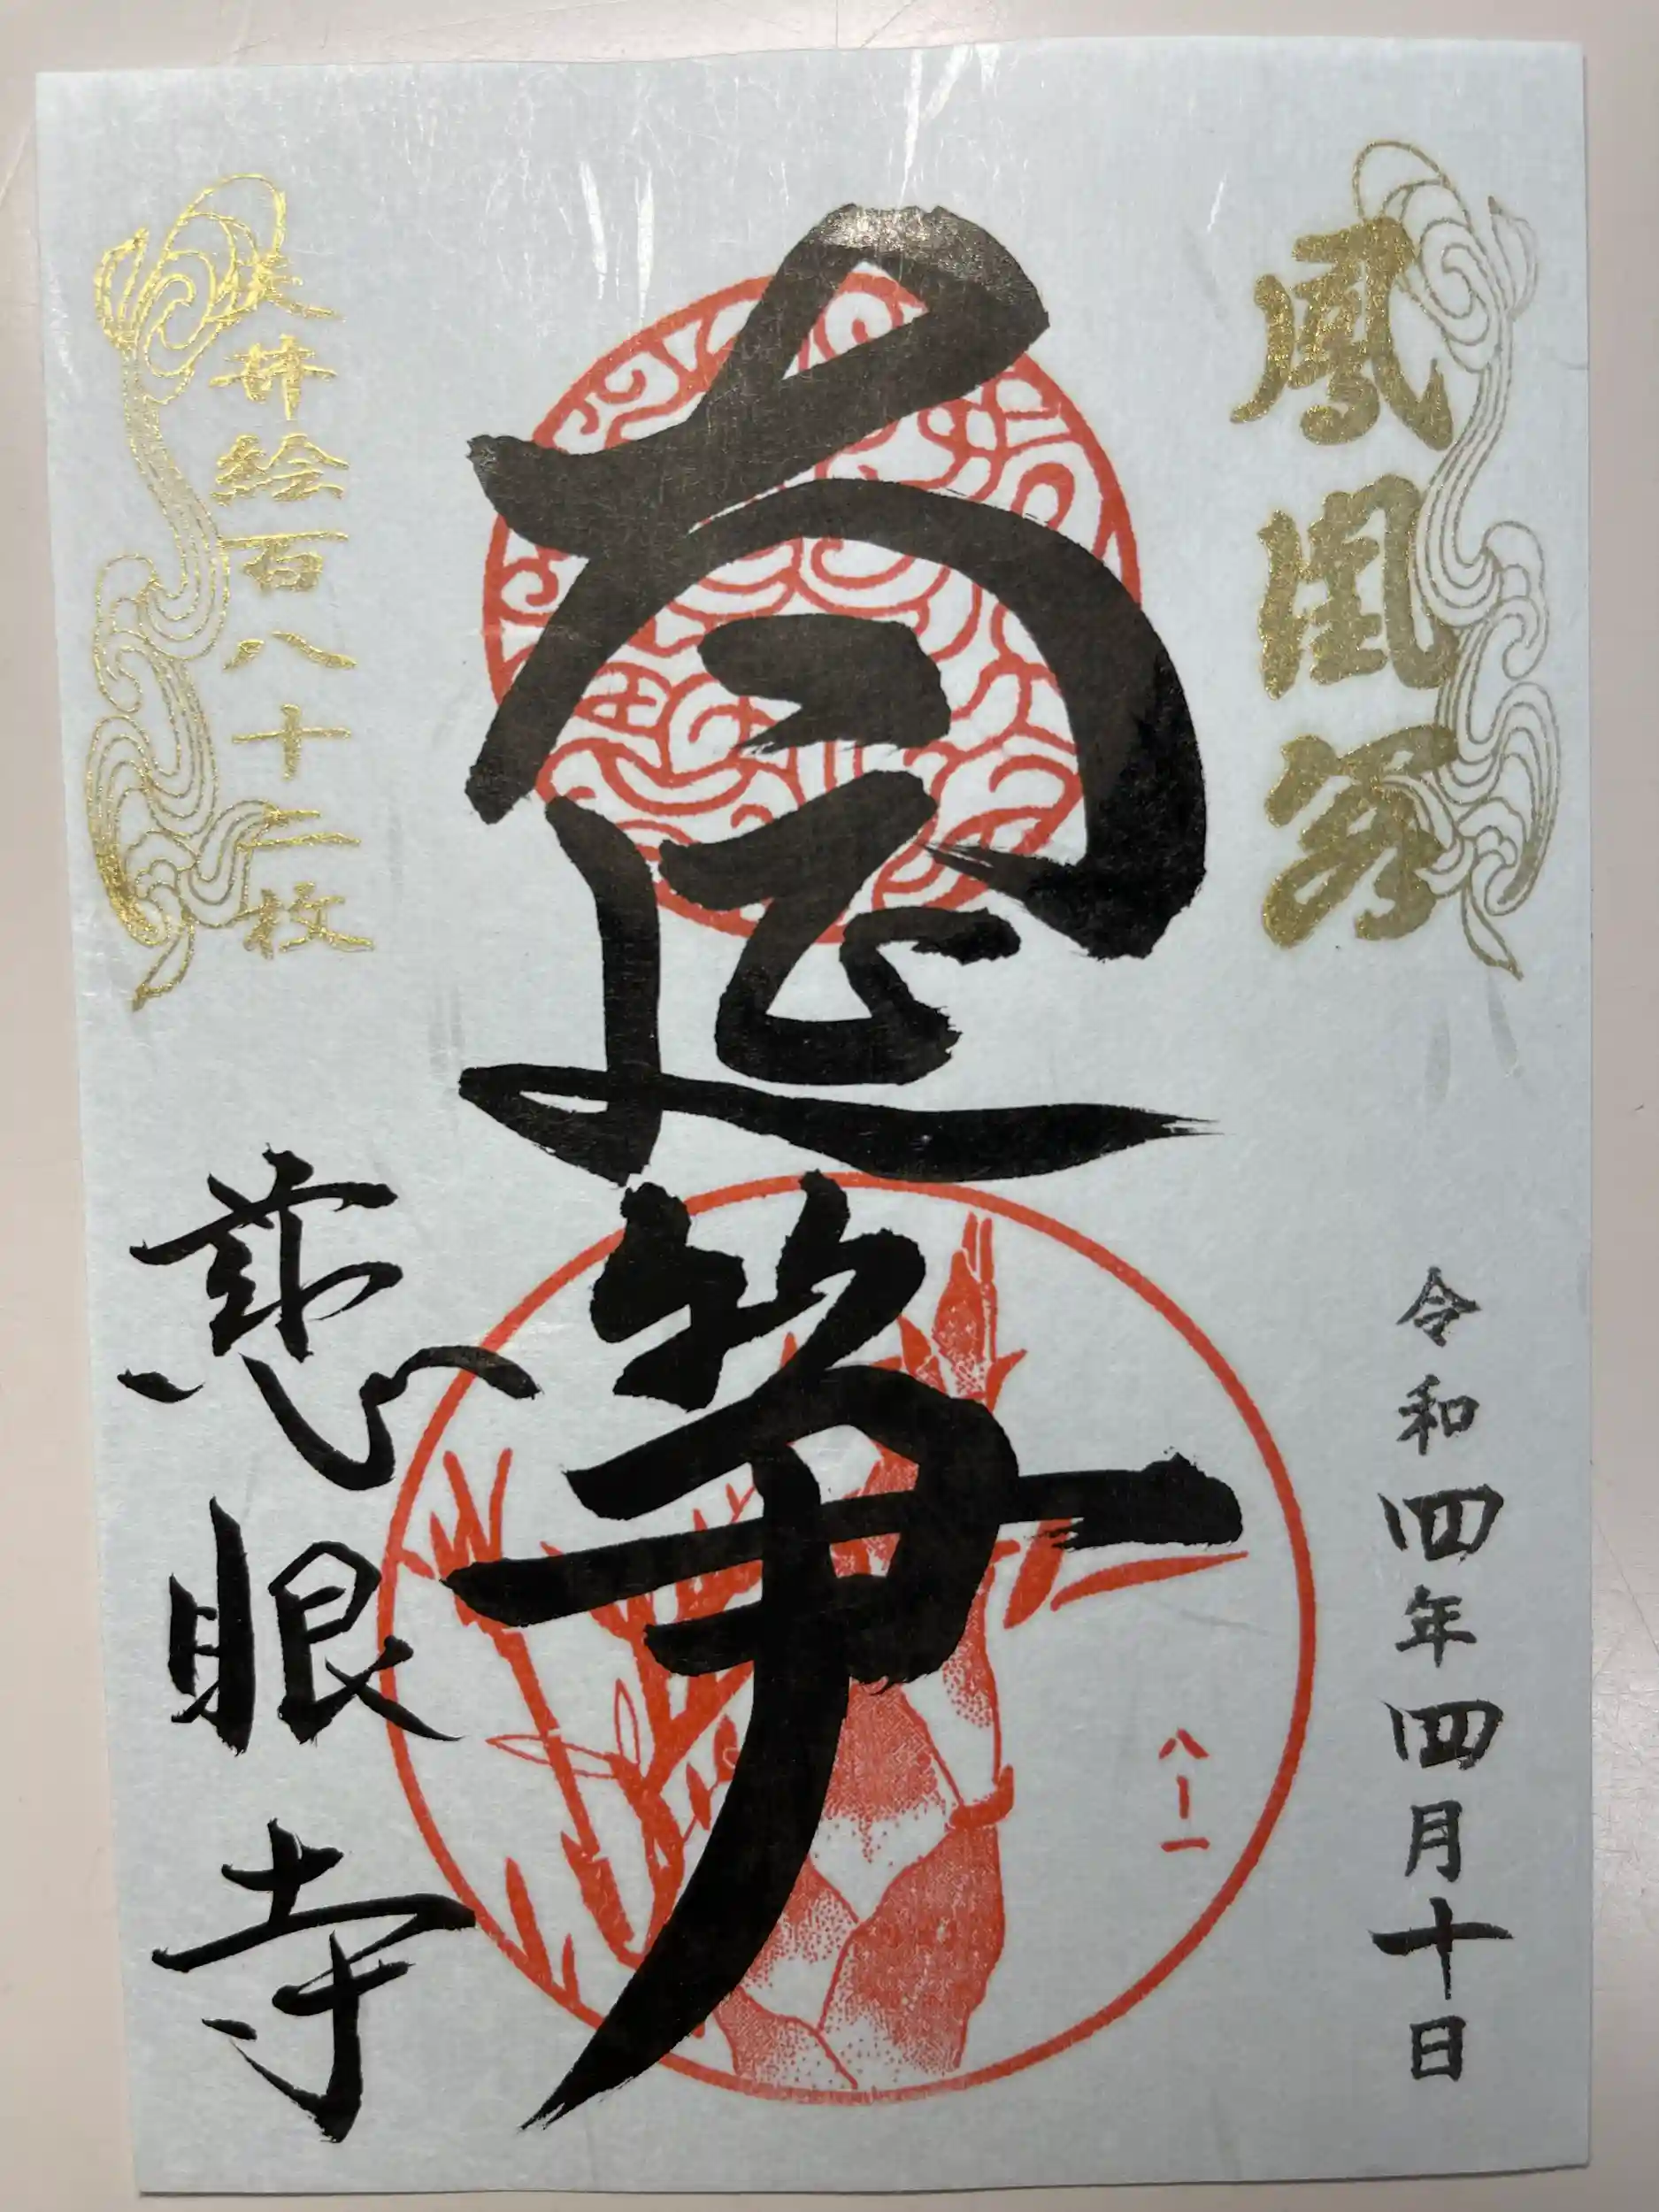 鳳凰
令和四年四月十日
延笋
八ー一
天井絵百八十二枚
慈眼寺